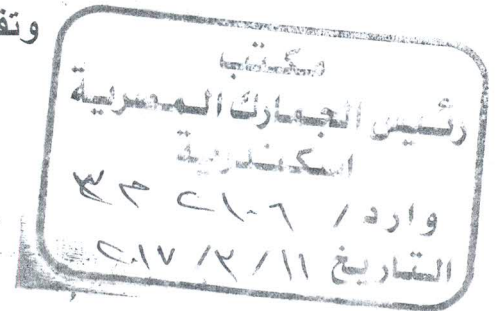 وتف
مكتب
رئيس الجمارك المصرية
اسكندرية
وارد / ٢١٠٦ ٣٢
التاريخ ١١ / ٢ / ٢٠١٧